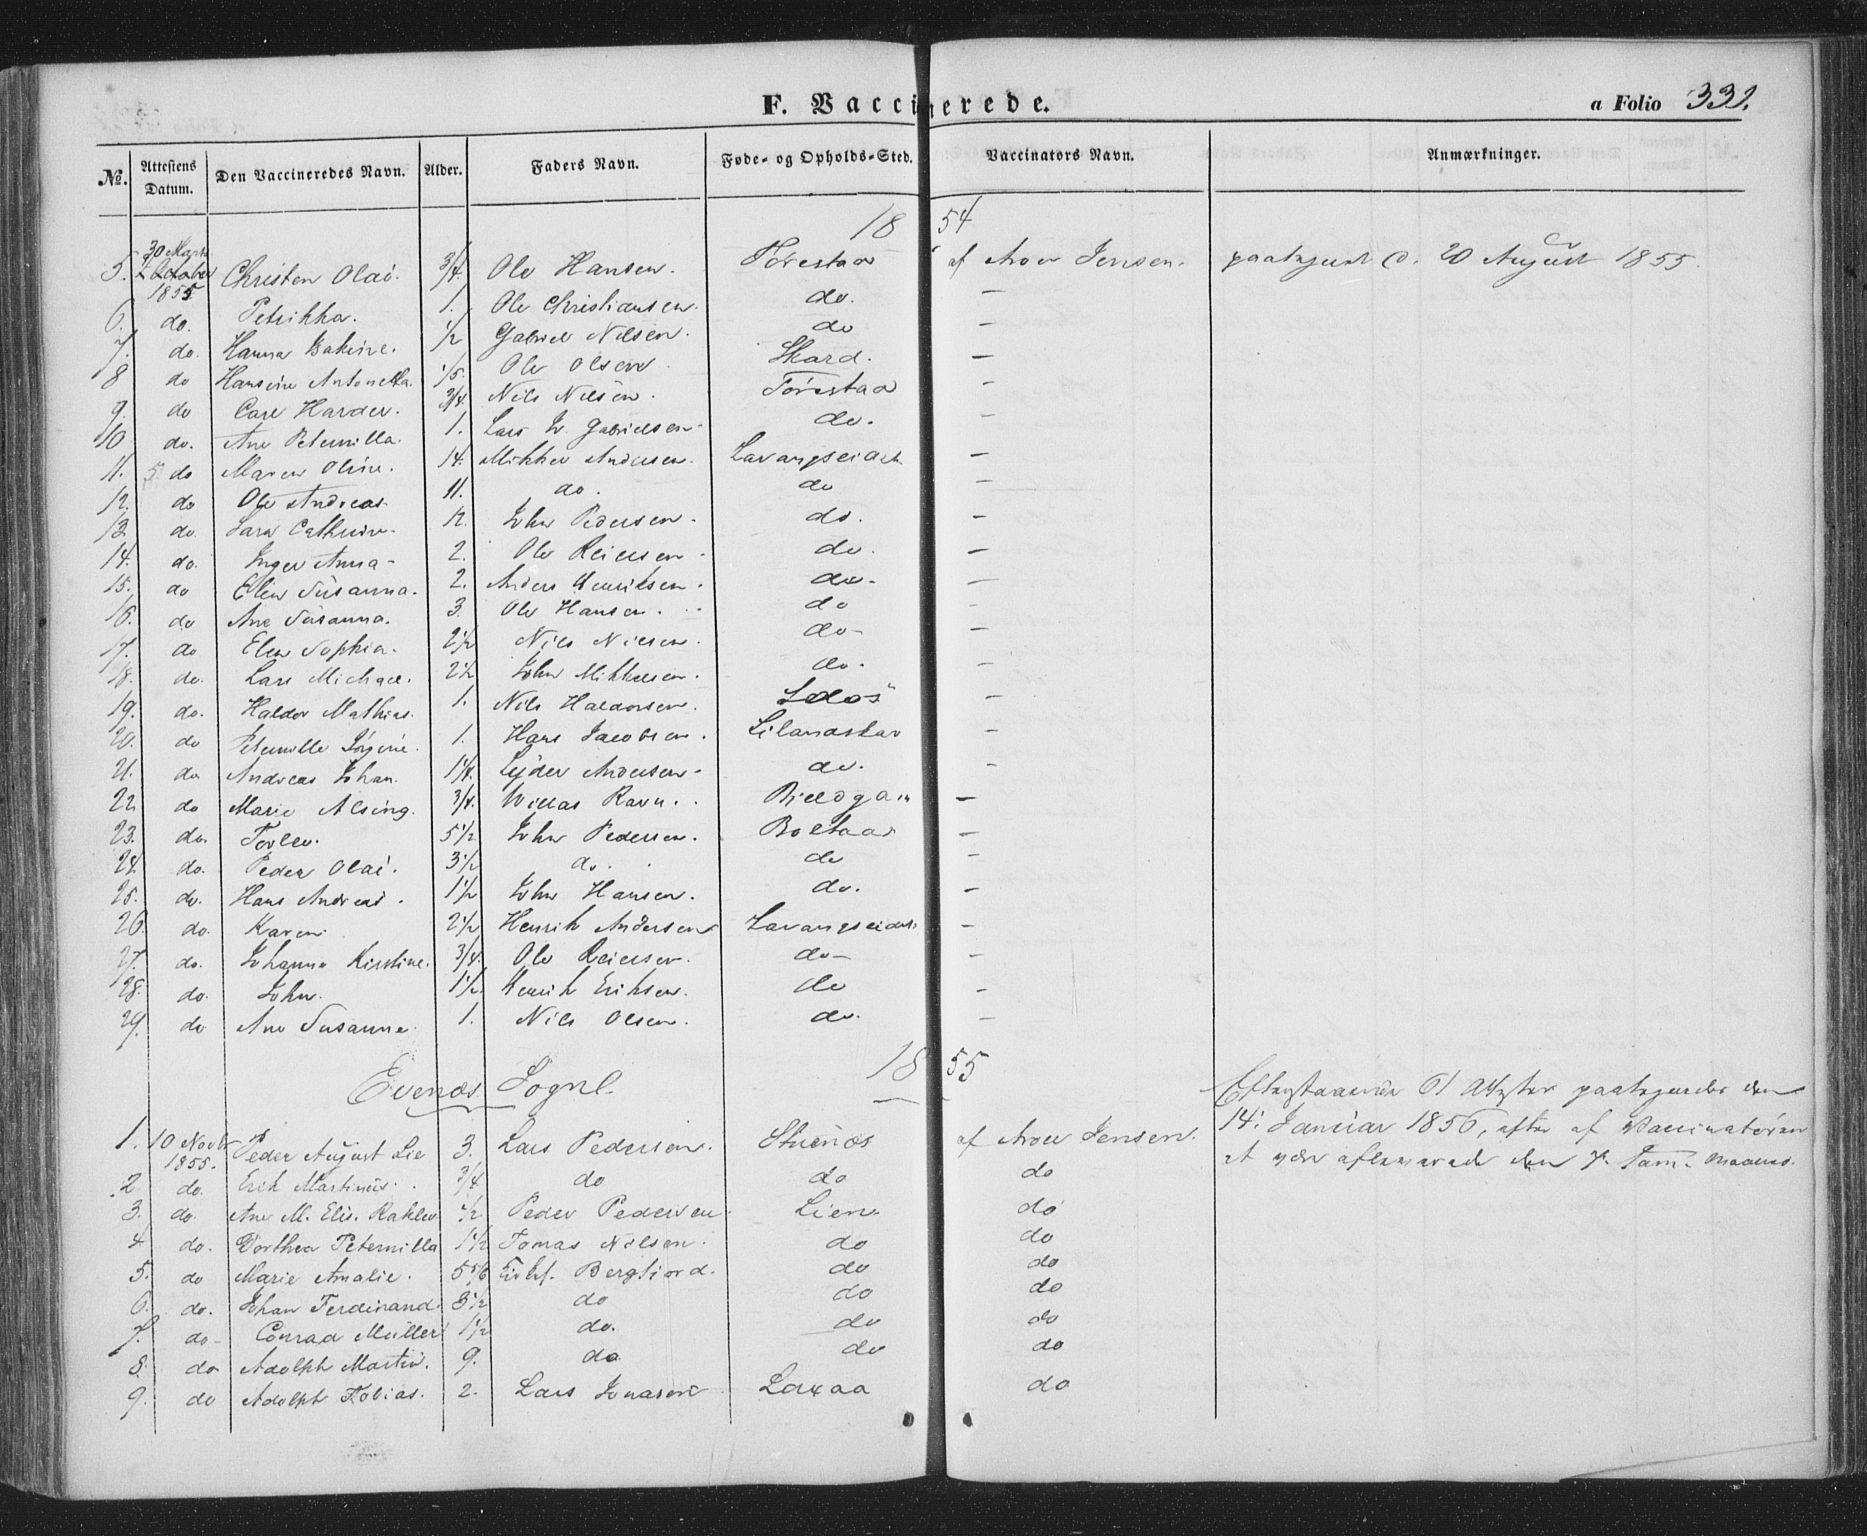 F. Vaccinerede.
a Folio 331.
No. Attestens Datum. Den Vaccineredes Navn. Alder. Faders Navn. Føde- og Opholds-Sted. Vaccinators Navn. Anmærkninger.
1854
5. 30 Marts October 1855 Christen Olai. 3/4 Ole Hansen. Tørestad af Aron Jensen. paategnet d. 20 August 1855.
6. do. Petrikka. 1. Ole Christiansen. do. –
7. do. Hanna 1/2 Gabriel Nilsen. do –
8 do Hansine Antonetta. 1/5. Ole Olsen. Skard. –
9. do Carl Harder. 3/4. Nils Nilsen. Tørestad –
10 do. Ane Peternilla. 1. Lars Gabrielsen. do. –
11. do Maren Oline. 14. Mikkel Andersen. Lavangseidet. –
12. do Ole Andreas. 11. do. do –
13 do Sara Cathrine. 12. John Pedersen. do. –
14. do. Inger Anna – 2. Ole Reiersen do. –
15. do Elen Susanna. 2. Anders Henriksen. do. –
16. do Ane Susanna. 3. Ole Hansen. do –
17. do Elen Sophia. 2 1/2 Nils Nielsen. do –
18. do. Lars Michael. 2 1/2 John Mikkelsen. do. –
19. do. Haldor Mathias. 1. Nils Haldorsen. –
20. do Peternille Jørgine. 1. Hans Jacobsen. Lilandskar –
21. do Andreas Johan. 1 1/8. Lyder Andersen. do. –
22. do Marie Alsing. 3/4. Willas Ravn. –
23. do. 5 1/2 John Pedersen. Boltaas –
24. do. Peder Olai. 3 1/2 do. do –
25. do. Hans Andreas. 1 1/2 John Hansen. do. –
26. do. Karen. 2 1/2 Henrik Andersen Lavangseidet. –
27. do. Johanna Kirstine. 3/4. Ole Reiersen. do – –
28. do. John. 1 1/2. Henrik Eriksen. do –
29. do Ane Susanne. 1. Nils Olsen. do. –
1855
Evenæs Sogn.
Efterstaaende 61 Attester paategnedes den
1. 10 Novbr 1855. Peder August Lie 3. Lars Pedersen. Stuenæs af Aron Jensen. 14. Januar 1856, efter af Vaccinatøren
at være afleverede den 7. Maaned.
2 do. Erik Martinus. 3/4 do do do
3. do. Ane M. Elis. Rakkel 1/2 Peder Pedersen Lien. do
4 do. Dorthea Peternilla 1 1/2 Tomas Nilsen. do do
5. do Marie Amalie. 5 5/6 Bergfjord. do do
6. do. Johan Ferdinand. 3 1/2 do do do
7. do – Conrad Müller 1 1/2 do. do do
8. do Adolph Martin. 9. do do do
9. do Adolph Tobias. 2. Lars Jonasen Laxaa do